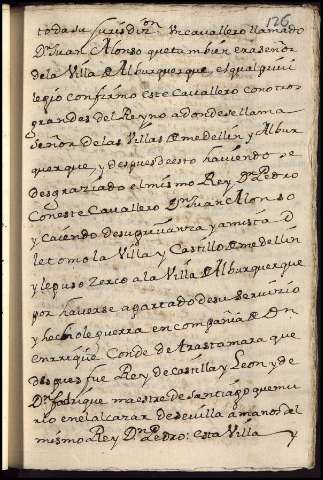 126
toda su Jurisdiz.on Un cavallero llamado
D.n Juan Alonso que tambien era señor
de la Villa de Alburquerque, el qual privi
legio confirmo este Cavallero con otros
grandes del Reyno adonde se llama
Señor de las Villas de medellin y Albur
querque, y despues de esto haviendo se
desgraziado el mismo Rey D.n Pedro
con este Cavallero D.n Juan Alonso
y caiendo de su privanza y amista D
le tomo la Villa y Castillo de medellin
y le puso Zerco a la Villa de Alburquerque
por haverse apartado de su servizio
y hechole guerra en compañia de D.n
enrrique Conde de Trastamara que
despues fue Rey de Castilla y Leon y de
D.n fadrique maestre de Santiago que mu
rio en el alcazar de sevilla a manos del
mismo Rey D.n Pedro: esta Villa y